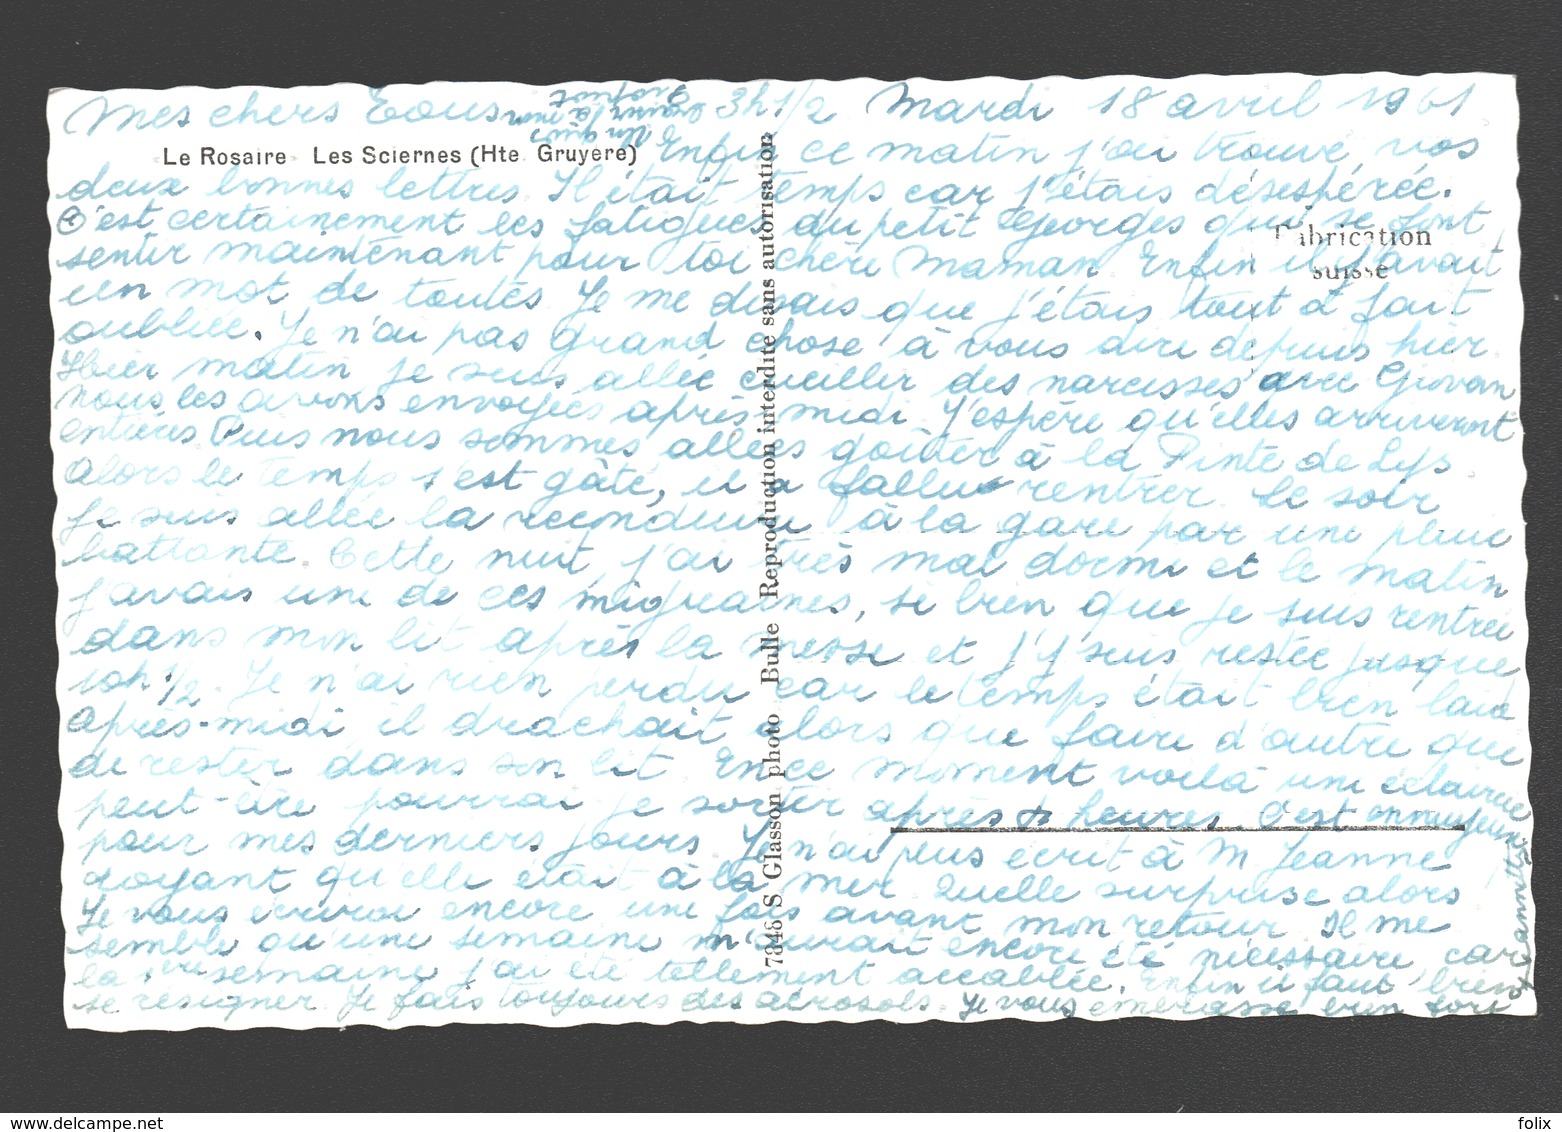 Mes chers Tous 3h 1/2 Mardi 18 avril 1961
Le Rosaire Les Sciernes (Hte Gruyere)
Enfin ce matin j'ai trouvé vos
deux bonnes lettres. Il était temps car j'étais désespérée.
C'est certainement les fatigues du petit Georges qui se font
sentir maintenant pour toi chère Maman. Enfin il y avait
un mot de toutes Je me disais que j'étais tout à fait
oubliée. Je n'ai pas grand chose à vous dire depuis hier.
Hier matin je suis allée cueillir des narcisses avec Giovan
nous les avons envoyées après-midi. J'espère qu'elles arriveront
entières Puis nous sommes allées goûter à la Pinte de Lys
alors le temps s'est gâté, il a fallu rentrer. Le soir
je suis allée la reconduire à la gare par une pluie
battante. Cette nuit j'ai très mal dormi et le matin
j'avais une de ces migraines, si bien que je suis rentrée
dans mon lit après la messe et j'y suis restée jusque
10h 1/2. Je n'ai rien perdu car le temps était bien laid
après-midi il drachait alors que faire d'autre que
de rester dans son lit. En ce moment voilà une éclaircie
peut-être pourrai je sortir après heures. C'est ennuyeux
pour mes derniers jours. Je n'ai plus écrit à M Jeanne
croyant qu'elle était à la mer Quelle surprise alors
Je vous écrirai encore une fois avant mon retour. Il me
semble qu'une semaine m'aurait encore été nécessaire car
la 1ère semaine j'ai été tellement accablée. Enfin il faut bien
se résigner. Je fais toujours des aérosols. Je vous embrasse bien fort
7348 S Glasson photo Bulle Reproduction interdite sans autorisation
Fabrication
suisse